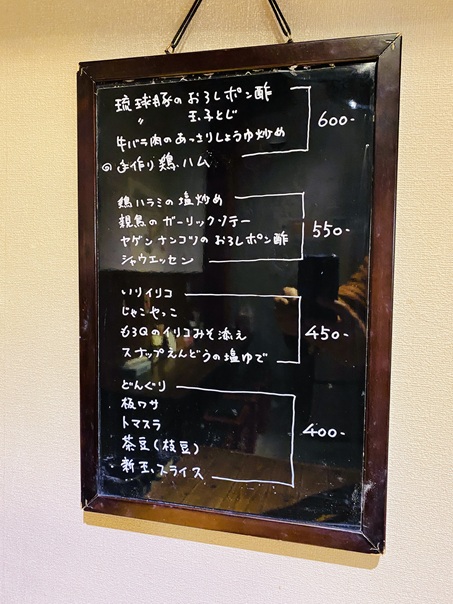 琉球豚のおろしポン酢
〃 玉子とじ
牛バラ肉のあっさりしょうゆ炒め
◎手作り鶏ハム
600-
鶏ハラミの塩炒め
親鳥のガーリックソテー
ヤゲンナンコツのおろしポン酢
シャウエッセン
550-
いりイリコ
じゃこやっこ
も3Qのイリコみそ添え
スナップえんどうの塩ゆで
450-
どんぐり
板ワサ
トマスラ
茶豆(枝豆)
新玉スライス
400-